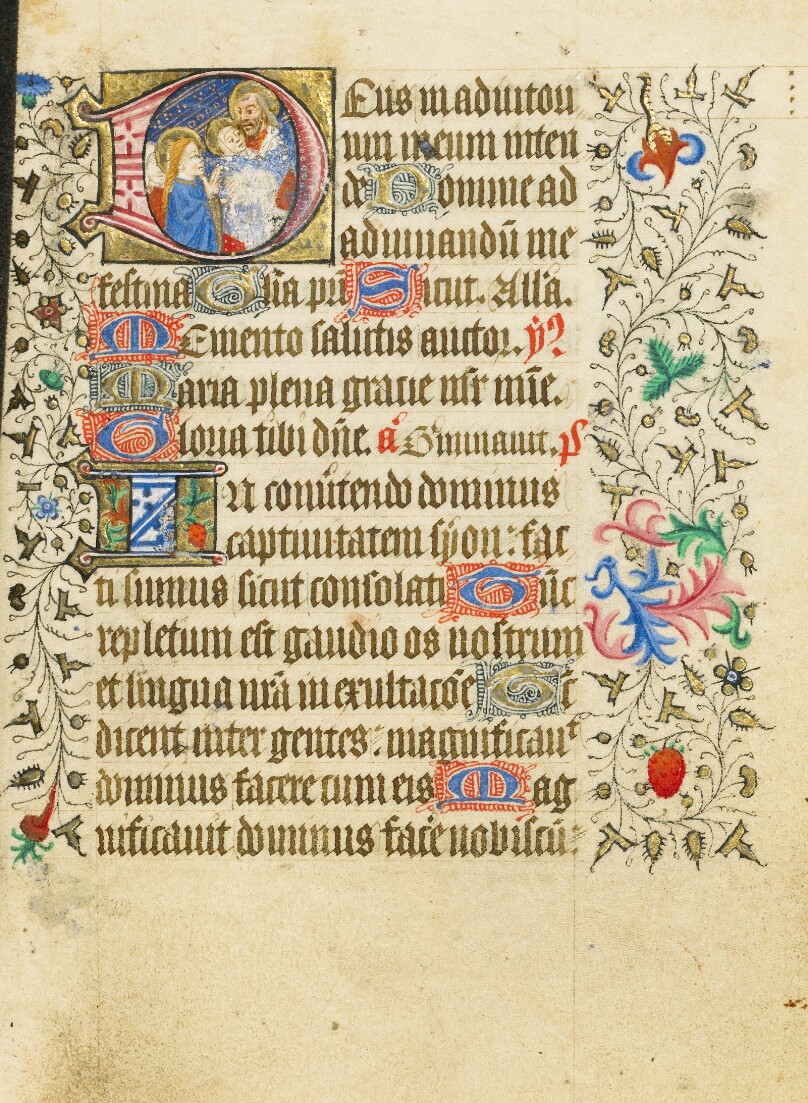 Deus in adiutori
um meum inten
de Domine ad
adiuuandū me
festina Glīa pri Sicut. Allā.
Memento salutis auctor. ꝟ
Maria plena gracie mīe.
Gloria tibi dn̄e. a͞ Germinauit. p̄s
In conu̾tendo dominus
captiuitatem syon: fac
ti sumus sicut consolati Tūc
repletum est gaudio os nostrum
et lingua nr̄a in exultacōe Tūc
dicent inter gentes: magnificauit
dominus facere cum eis Mag
nificauit dominus fac̾e nobiscū: